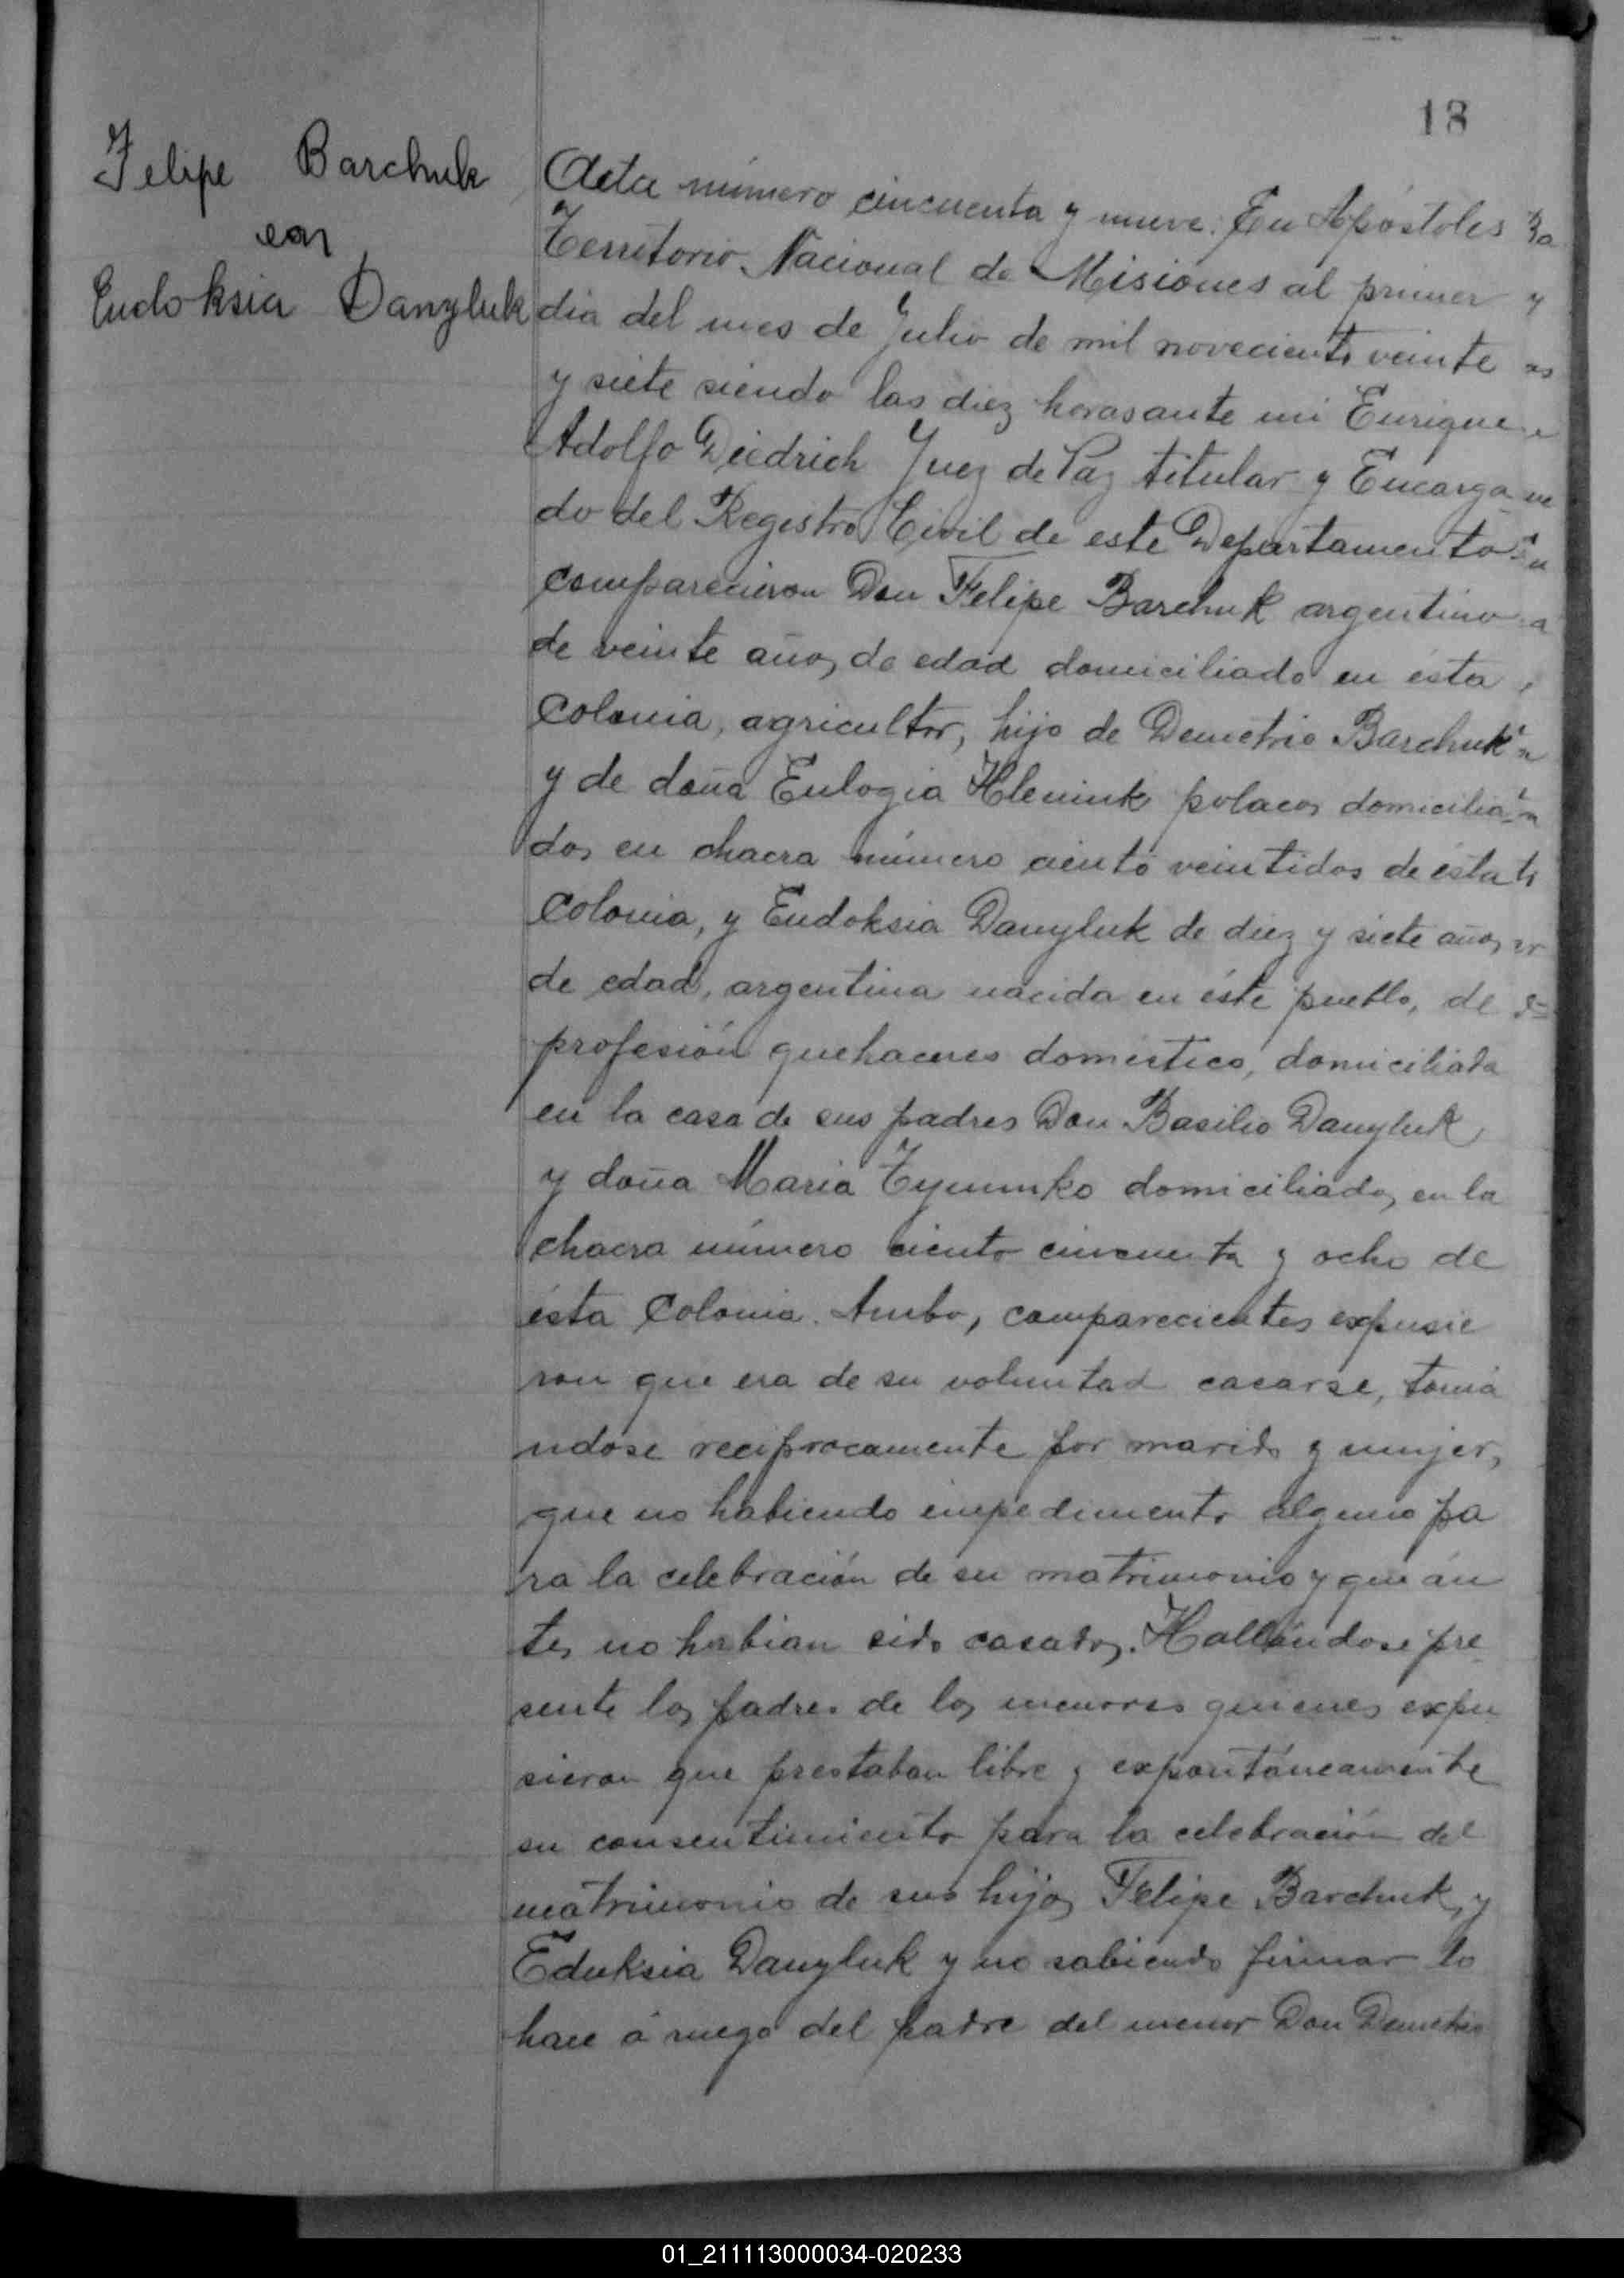 18
Felipe Barchuk
con
Eudoksia Danyluk
Acta número cincuenta y nueve. En Apóstoles
Territorio Nacional de Misiones al primer
dia del mes de Julio de mil novecientos veinte
y siete siendo las diez horas ante mi Enrique
Adolfo Diedrich Juez de Paz titular y Encarga
do del Registro Civil de este Departamento
comparecieron Don Felipe Barchuk argentino
de veinte años de edad domiciliado en ésta
Colonia, agricultor, hijo de Demetrio Barchuk
y de doña Eulogia polacos domicilia
dos en chacra número ciento veintidos de ésta
Colonia, y Eudoksia Danyluk de diez y siete años
de edad, argentina nacida en éste pueblo, de
profesión quehaceres domestico, domiciliada
en la casa de sus padres Don Basilio Danyluk
y doña Maria domiciliados en la
chacra número ciento cincuenta y ocho de
ésta Colonia. Ambos comparecientes expusie
ron que era de su voluntad casarse, tomá
ndose reciprocamente por marido y mujer,
que no habiendo impedimento alguno pa
ra la celebración de su matrimonio y que án
tes no habian sido casados. Hallándose pre
sente los padres de los menores quienes expu
sieron que prestaban libre y expontáneamente
su consentimiento para la celebración del
matrimonio de sus hijos Felipe Barchuk, y
Eduksia Danyluk y no sabiendo firmar lo
hace á ruego del padre del menor Don Demetrio
01_211113000034-020233